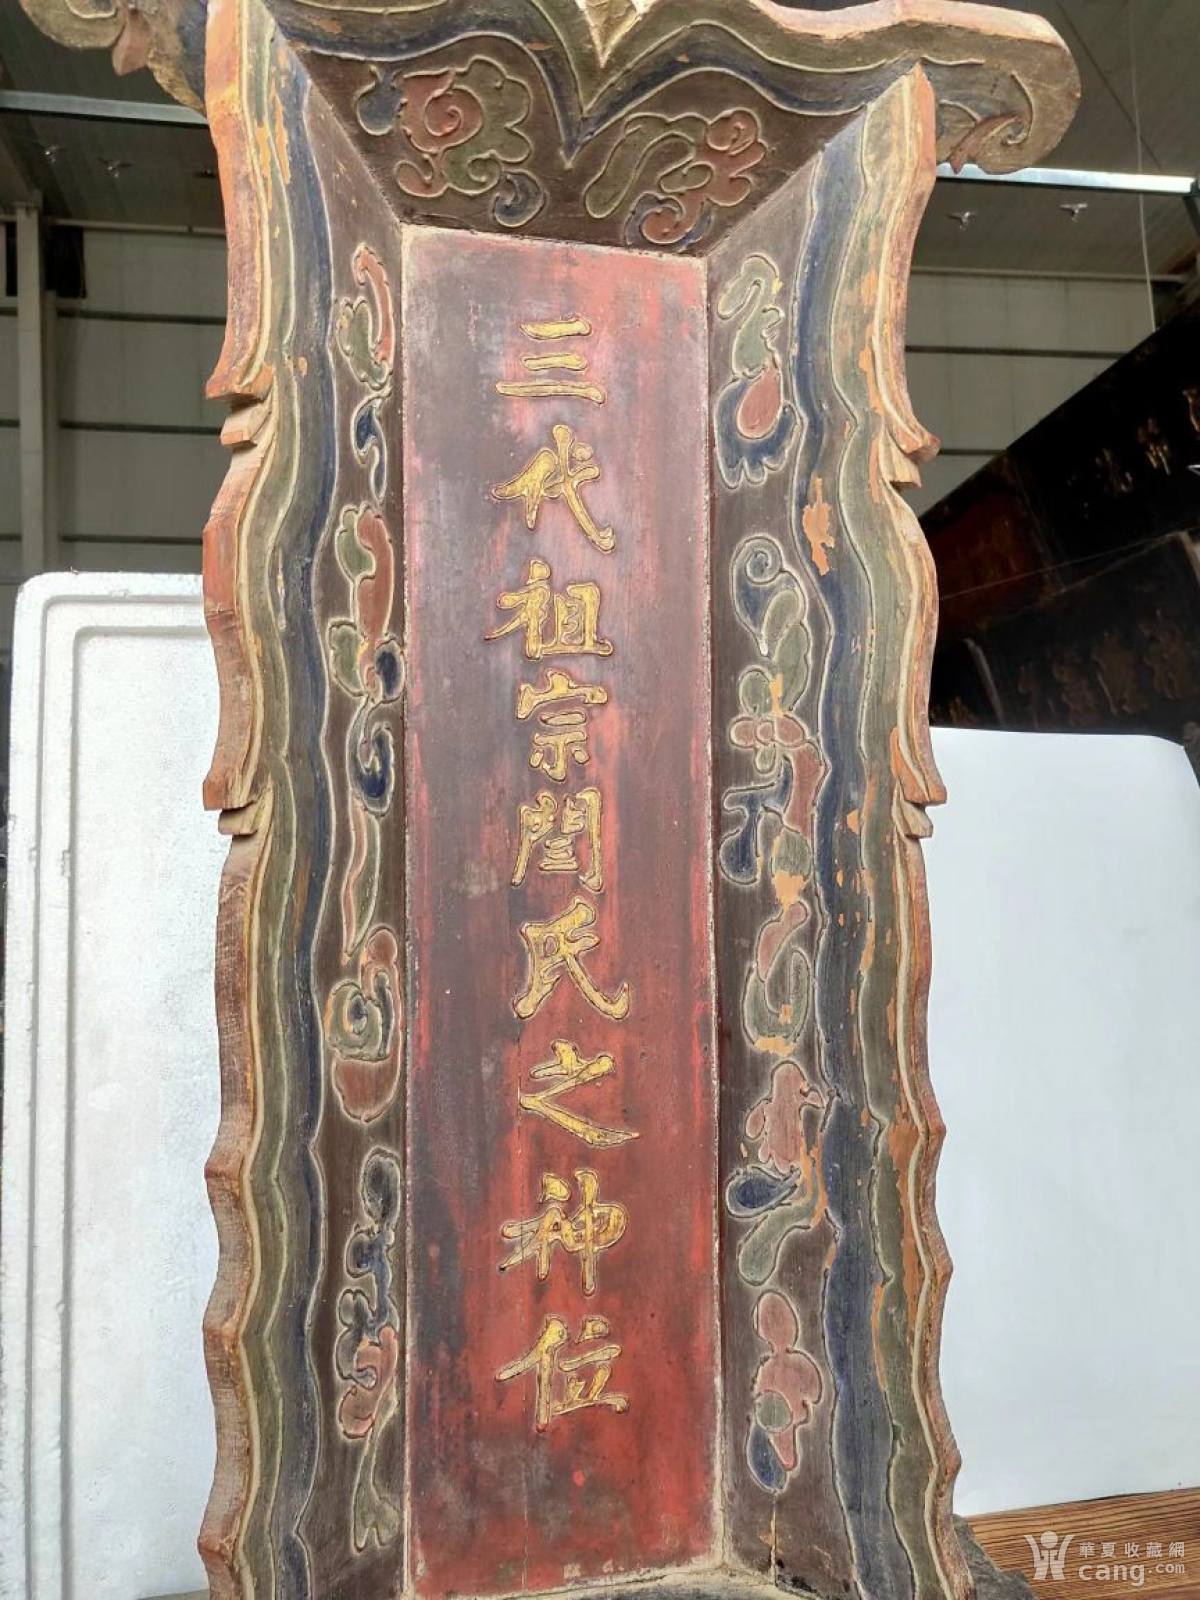 三代祖宗閆氏之神位
華夏收藏網
cang.com